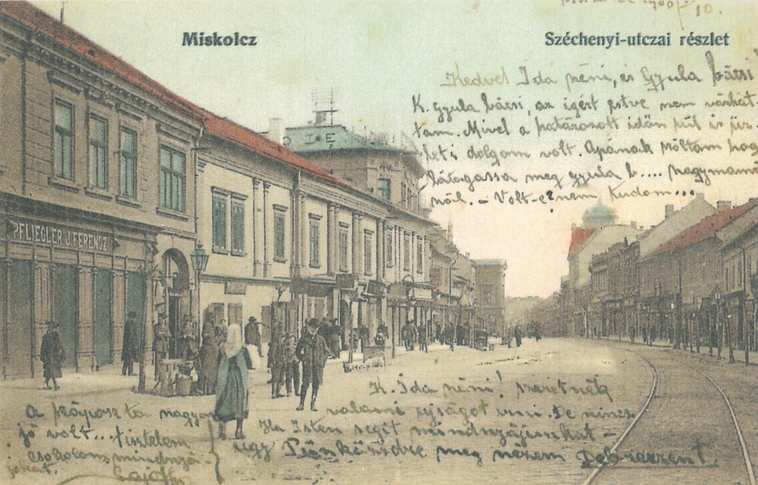 Miskolcz
Széchenyi-utczai részlet
10.
Kedves Ida néni, és Gyula bácsi!
K. gyula bácsi, az igért estve nem várhat-
tam. Mivel a határozott időn túl is üz-
leti dolgom volt. Apának szóltam hog
látogassa meg gyula b.... nagymamá
nál. - Volt-e? nem tudom...
PFLIEGLER J. FERENCZ
K. Ida néni! szeretnék
valami ujságot irni. De nincs
Ha Isten segit mindnyájunkat -
ugy Pünkösdre meg nézem Debreczent.
a káposzta nagyon
jó volt... tisztelem
csokolom mindnyá-
jukat.